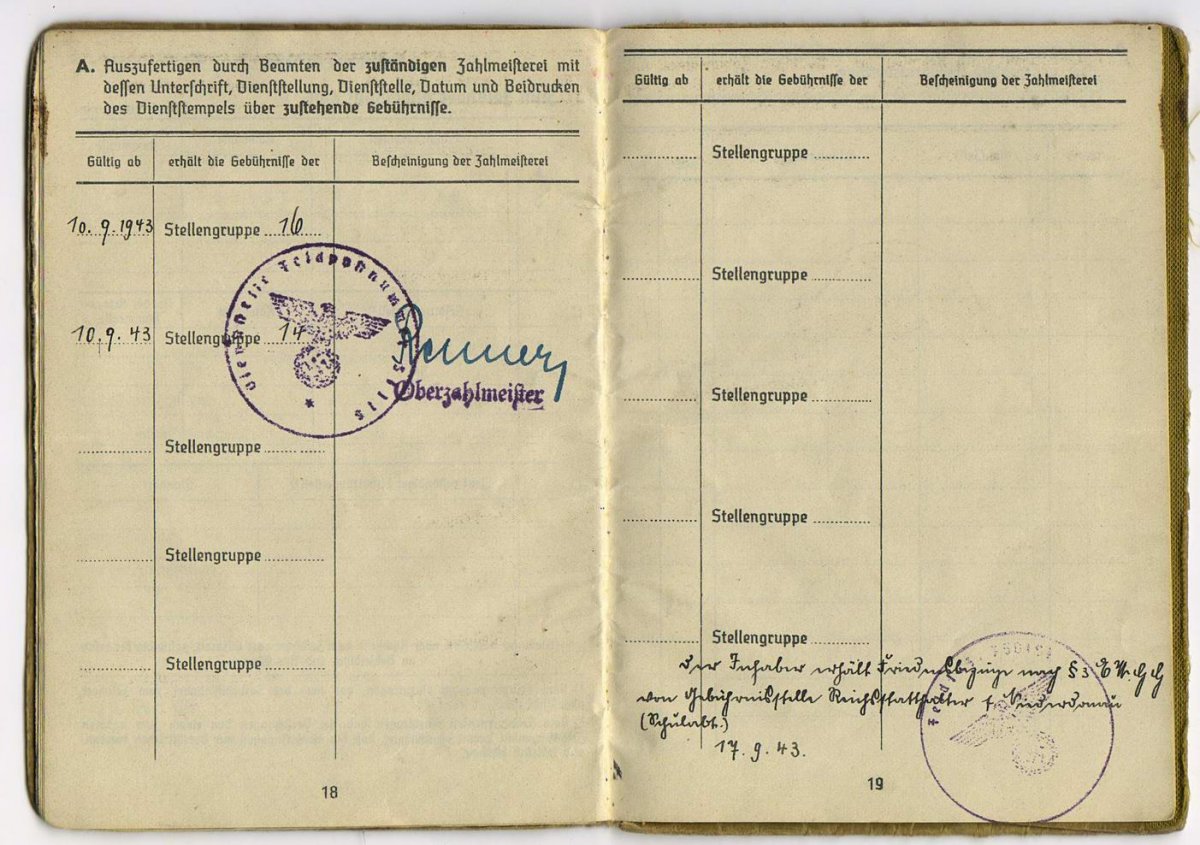 A. Auszufertigen durch Beamten der zuständigen Zahlmeisterei mit
dessen Unterschrift, Dienststellung, Dienststelle, Datum und Beidrucken
des Dienststempels über zustehende Gebührnisse.
Gültig ab erhält die Gebührnisse der Bescheinigung der Zahlmeisterei
10.9.1943 Stellengruppe 16
Dienststelle Feldpostnummer
10.9.43 Stellengruppe 14
Oberzahlmeister
Stellengruppe
Stellengruppe
Stellengruppe
18
Gültig ab erhält die Gebührnisse der Bescheinigung der Zahlmeisterei
Stellengruppe
Stellengruppe
Stellengruppe
Stellengruppe
Stellengruppe
Der Inhaber erhält Friedensbezüge nach § 3 E W. G G
von Gebührnisstelle Reichsstatthalter Niederdonau
(Schulabt.)
17.9.43.
19